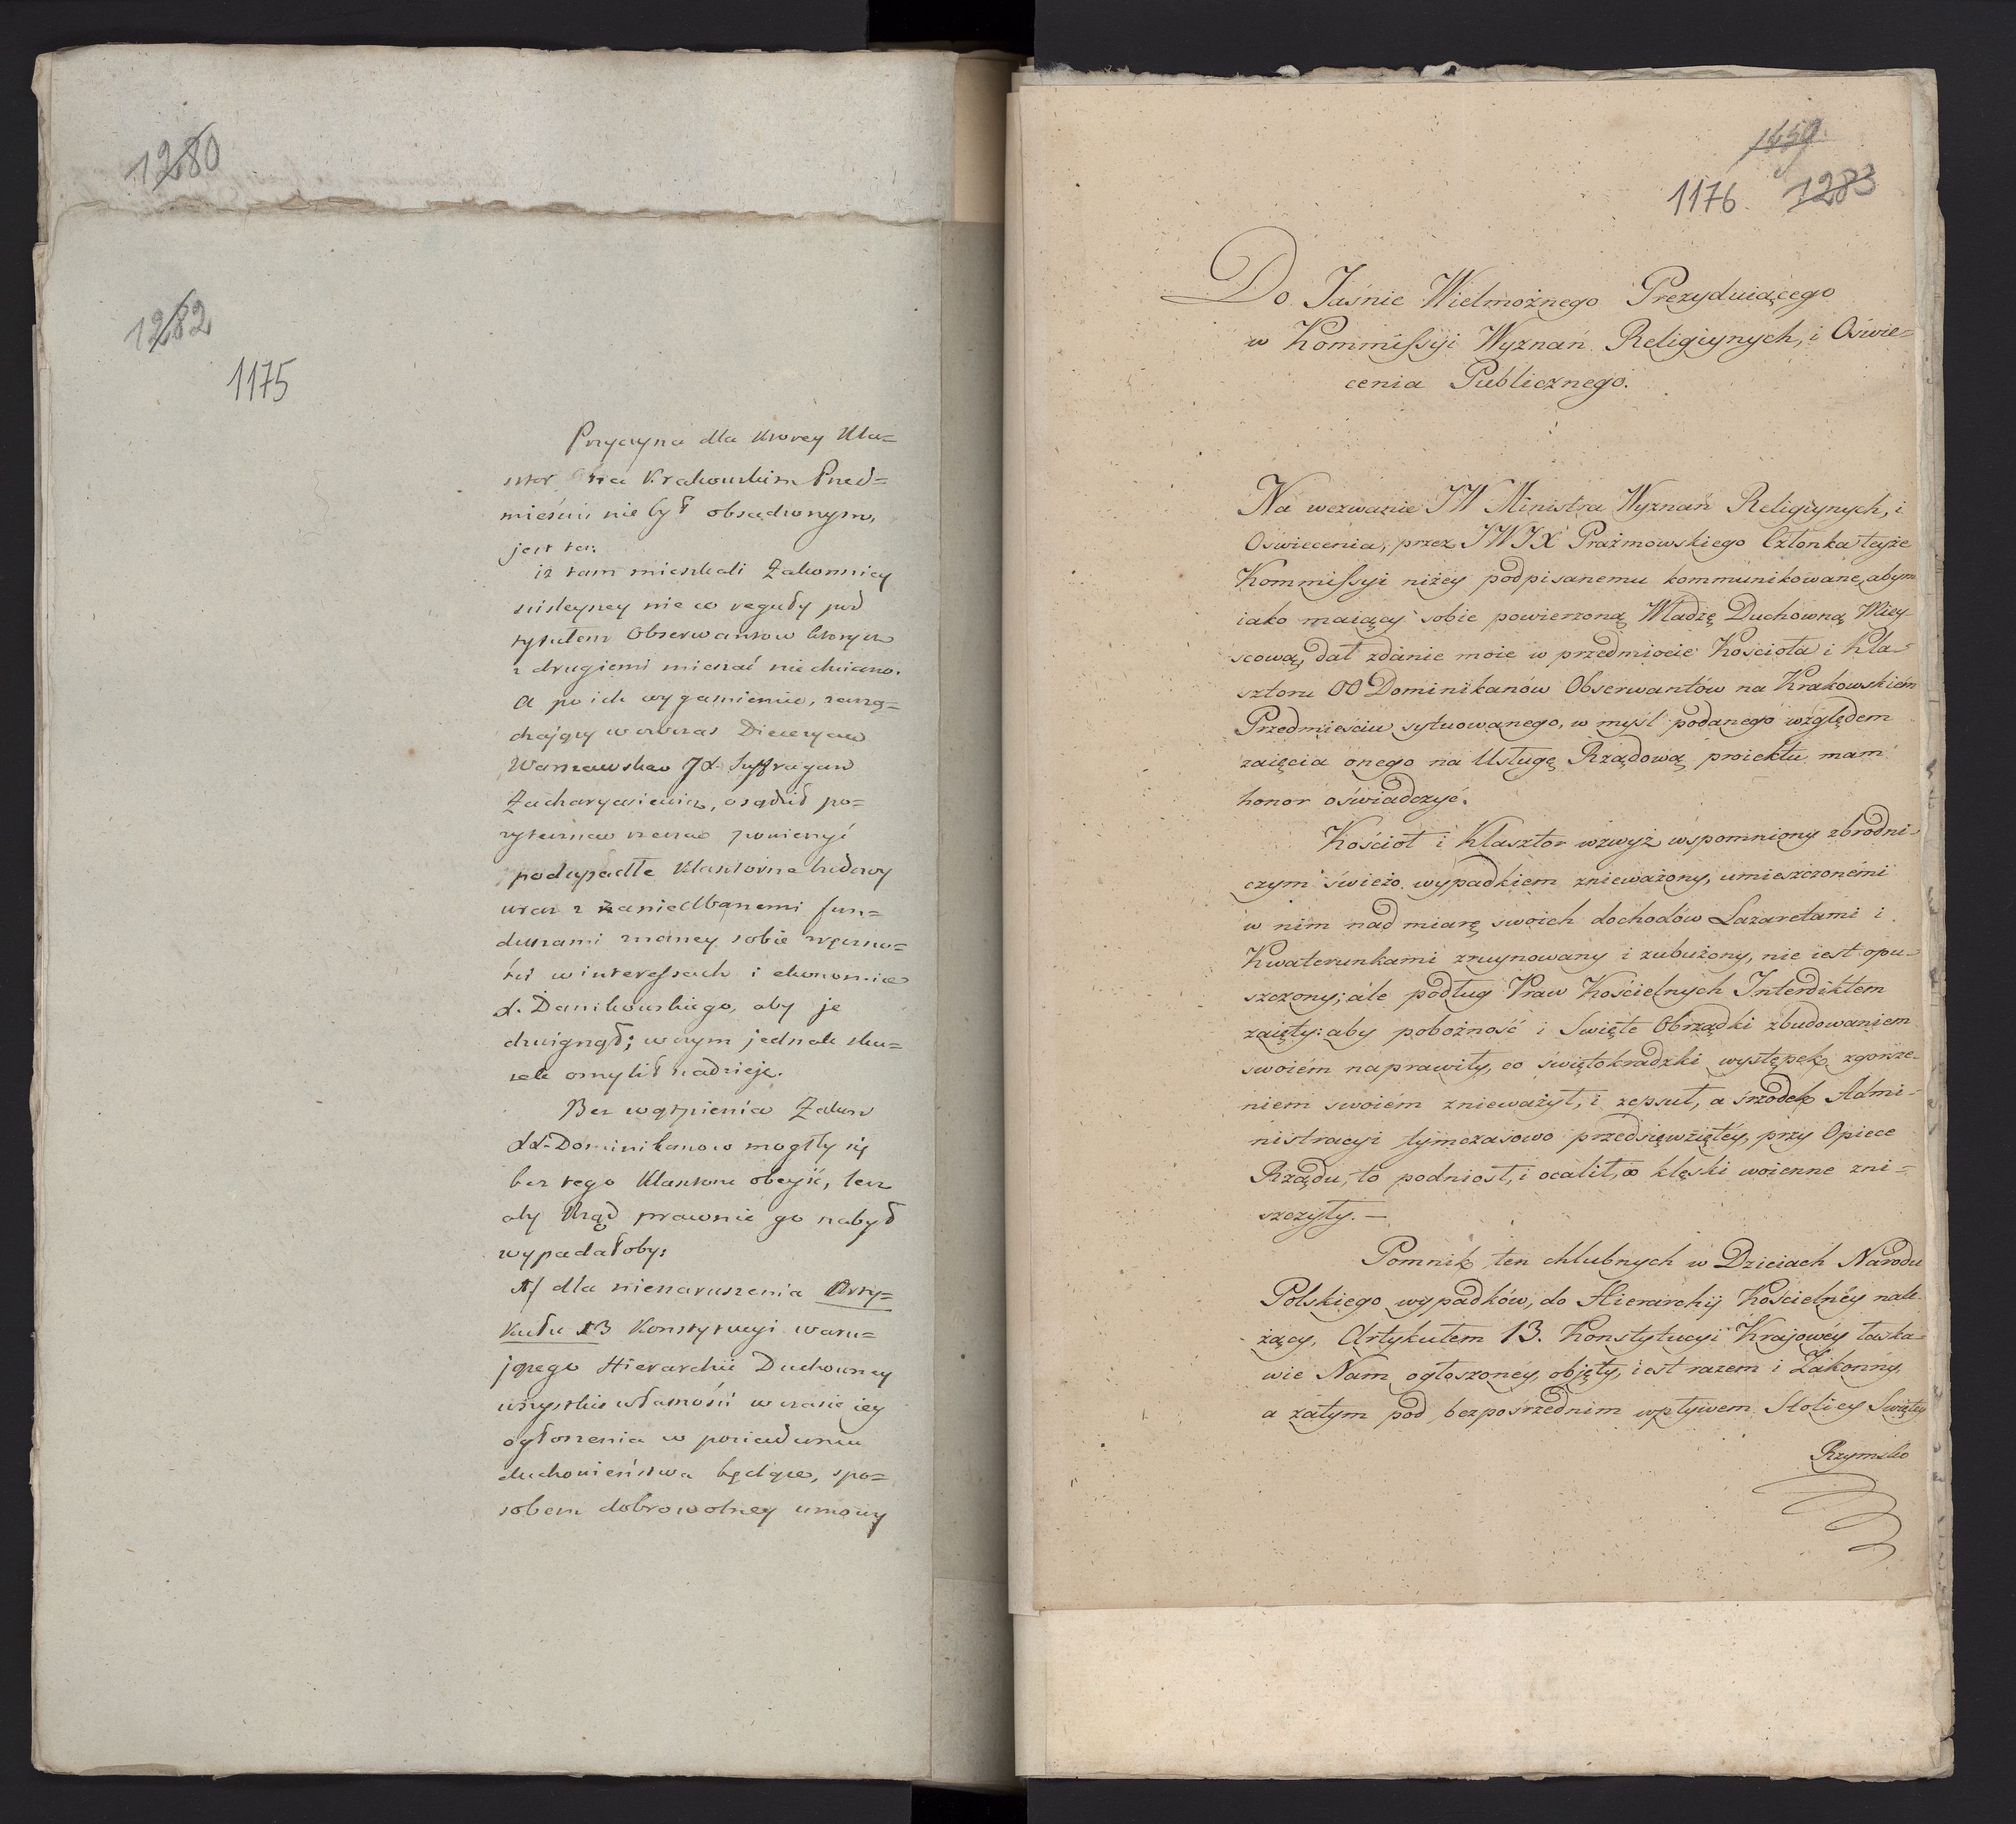 1280
1282
1175
Przyczyna dla ktorey Kla=
sztor na Krakowskim Przed=
mieściu nie był obsadzonym,
jest ta:
iż tam mieszkali Zakonnicy
scisleyszey nieco reguły pod
tytułem Obserwantow ktorych
z drugiemi mieszać nie chciano.
A po ich wygasnieniu, zarzą=
dzający wowczas Dieceyzą
Warszawską JX. Suffragan
Zacharyasiewicz, osądził po=
zyteczną rzeczą powierzyć
podupadłe klasztorne budowy
wraz z zaniedbanemi fun=
duszami znaney sobie zręczno=
ści w interessach i ekonomice
X. Danikowskiego, aby je
dzwignął; w czym jednak sku=
tek omylił nadzieję.
Bez wątpienia Zakon
XX. Dominikanow mogłby się
bez tego Klasztoru obeyść, lecz
aby Rząd prawnie go nabył
wypadałoby:
1/ dla nienaruszenia Arty=
kułu 13 Konstytucyi waru=
jącego Hierarchii Duchowney
wszystkie własności w czasie jey
ogłoszenia w posiadaniu
duchowieństwa będące, spo=
sobem dobrowolney umowy
1459.
1176. 1283
Do Jaśnie Wielmożnego Prezyduiącego
w Kommissyi Wyznań Religiynych, i Oświe=
cenia Publicznego.
Na wezwanie JW Ministra Wyznań Religiynych, i
Oswiecenia, przez JWJX Prażmowskiego Członka teyże
Kommissyi niżey podpisanemu kommunikowane, abym
iako maiący sobie powierzoną Władzę Duchowną Miey=
scową, dał zdanie moie w przedmiocie Kościoła i Kla=
sztoru OO Dominikanów Obserwantów na Krakowskiém
Przedmieściu sytuowanego, w myśl podanego względem
zaięcia onego na Usługę Rządową proiektu, mam
honor oświadczyć.
Kościoł i Klasztor wzwyż wspomniony zbrodni=
czym świeżo wypadkiem znieważony, umieszczonémi
w nim nad miarę swoich dochodów Lazaretami i
Kwaterunkami zruynowany i zubużony, nie iest opu=
szczony; ale podług Praw Kościelnych Interdiktem
zaięty: aby pobożność i Swięte Obrządki zbudowaniem
swoiém naprawiły, co świętokradzki występek zgorsze=
niem swoiém znieważył, i zepsuł, a śrzodek Admi=
nistracyi tymczasowo przedsięwziętéy, przy Opiece
Rządu, to podniosł, i ocalił, co klęski woienne zni=
szczyły. —
Pomnik ten chlubnych w Dzieiach Narodu
Polskiego wypadków, do Hierarchij Kościelnéy nale=
żący, Artykułem 13. Konstytucyi Krajowéy łaska=
wie Nam ogłoszonéy, objęty, iest razem i Zakonny,
a zatym pod bezpośrzednim wpływem Stolicy Swiętey
Rzymsko